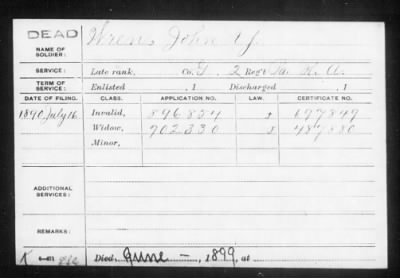 DEAD
NAME OF SOLDIER: Wren, John Y.
SERVICE: Late rank, Co. G, 2 Reg't Pa. H. A.
TERM OF SERVICE: Enlisted , 1 Discharged , 1
DATE OF FILING. CLASS. APPLICATION NO. LAW. CERTIFICATE NO.
1890, July 16 Invalid, 896854 677849
Widow, 702330 487880
Minor,
ADDITIONAL SERVICES:
REMARKS:
Died June — , 1899, at